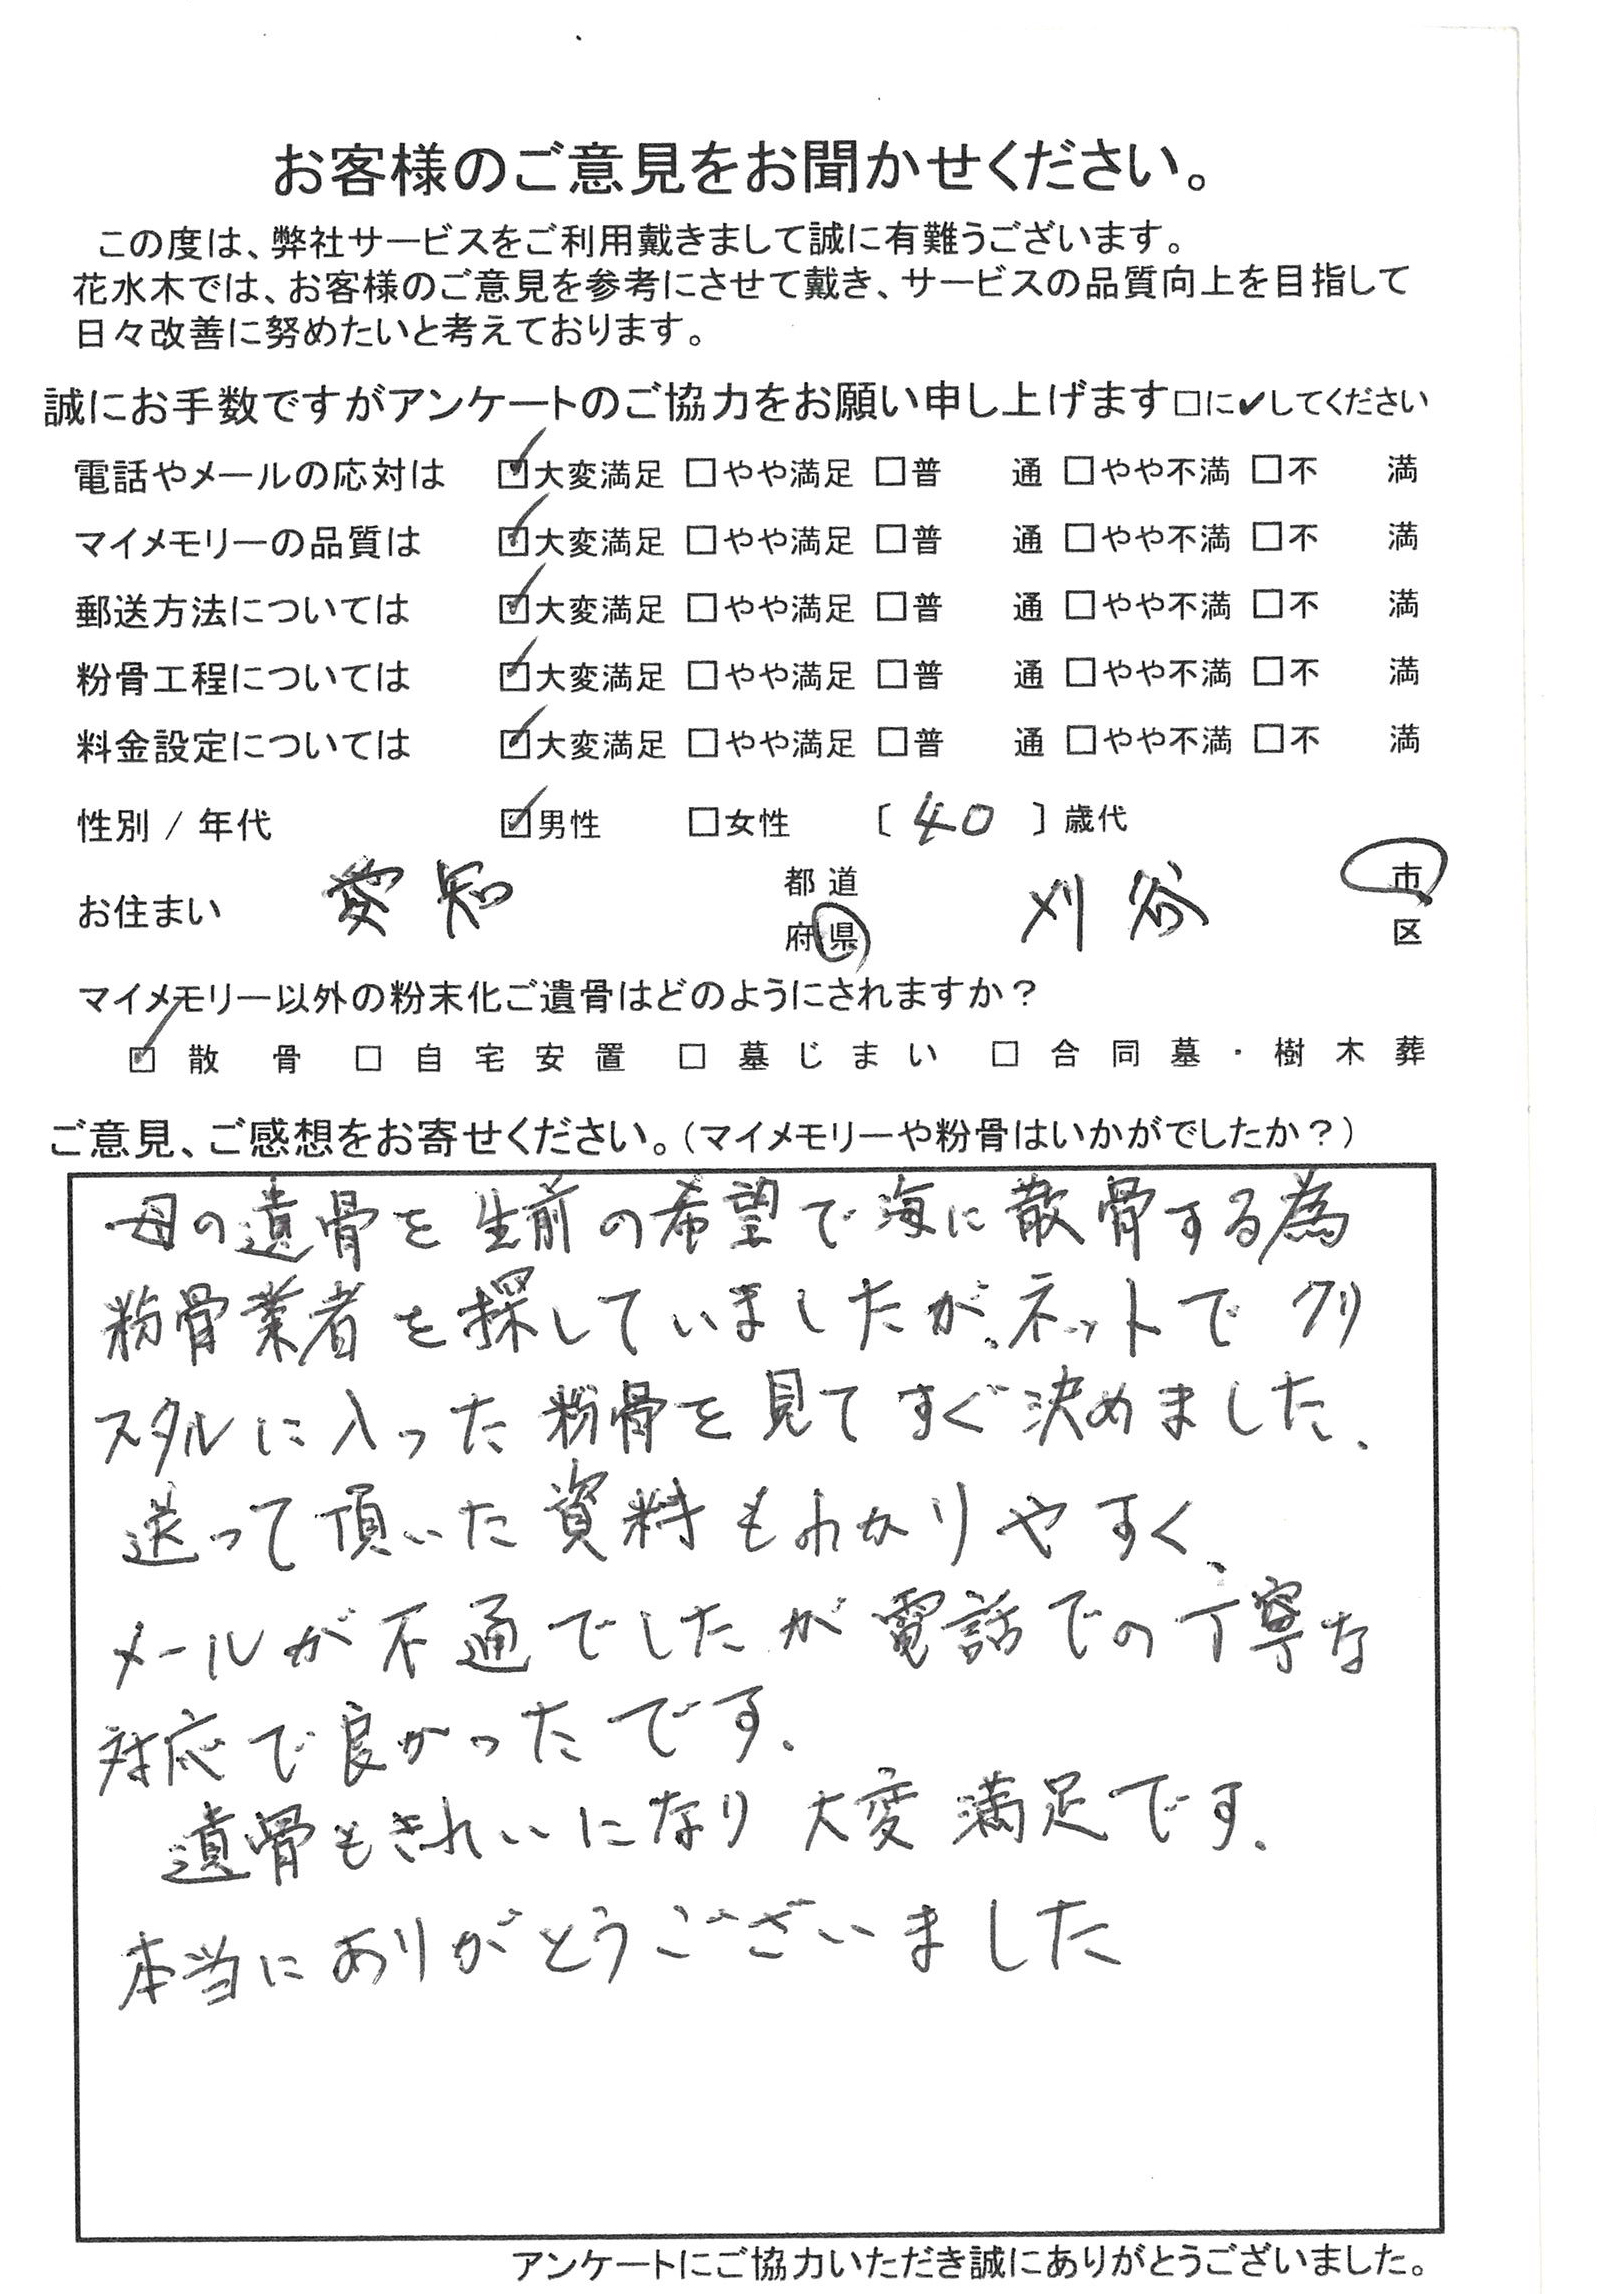 お客様のご意見をお聞かせください。
この度は、弊社サービスをご利用戴きまして誠に有難うございます。
花水木では、お客様のご意見を参考にさせて戴き、サービスの品質向上を目指して
日々改善に努めたいと考えております。
誠にお手数ですがアンケートのご協力をお願い申し上げます□に✔してください
電話やメールの応対は ☑大変満足 □やや満足 □普 通 □やや不満 □不 満
マイメモリーの品質は ☑大変満足 □やや満足 □普 通 □やや不満 □不 満
郵送方法については ☑大変満足 □やや満足 □普 通 □やや不満 □不 満
粉骨工程については ☑大変満足 □やや満足 □普 通 □やや不満 □不 満
料金設定については ☑大変満足 □やや満足 □普 通 □やや不満 □不 満
性別 / 年代 ☑男性 □女性 〔 40 〕歳代
お住まい 愛知 都道府県 刈谷 市区
マイメモリー以外の粉末化ご遺骨はどのようにされますか?
☑ 散骨 □ 自宅安置 □ 墓じまい □ 合同墓・樹木葬
ご意見、ご感想をお寄せください。(マイメモリーや粉骨はいかがでしたか?)
母の遺骨を生前の希望で海に散骨する為
粉骨業者を探していましたが、ネットでクリ
スタルに入った粉骨を見てすぐ決めました、
送って頂いた資料もわかりやすく、
メールが不通でしたが電話での丁寧な
対応で良かったです、
遺骨もきれいになり大変満足です、
本当にありがとうございました
アンケートにご協力いただき誠にありがとうございました。